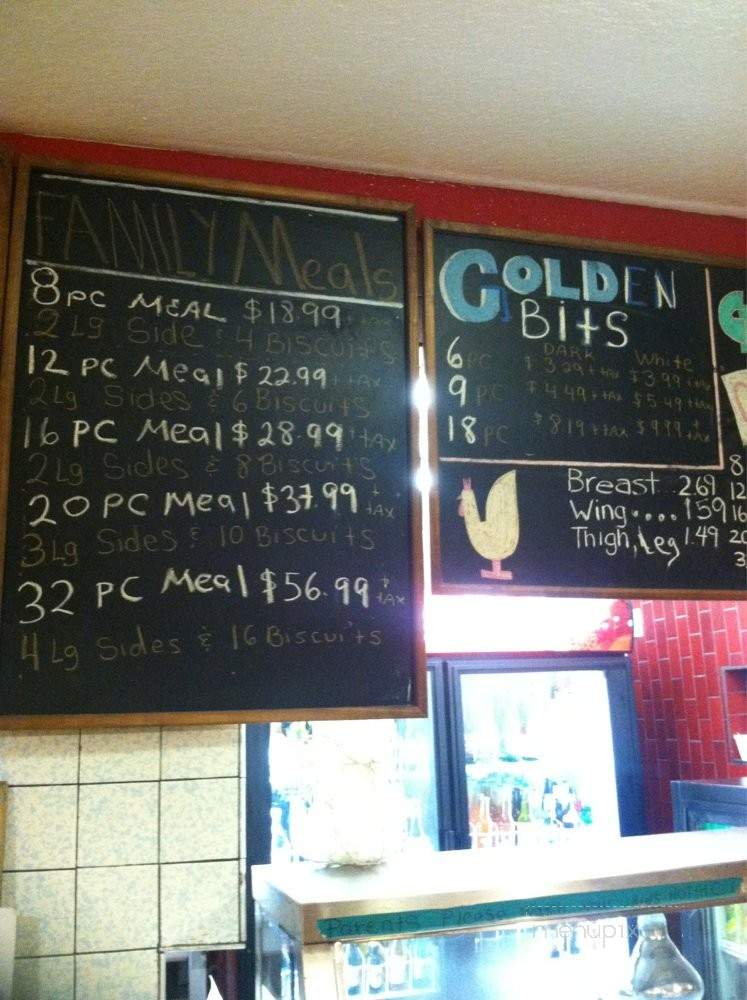 FAMILY Meals
8 PC MEAL $18.99 + tax
2 Lg Side & 4 Biscuits
12 PC Meal $22.99 + tax
2Lg Sides & 6 Biscuits
16 PC Meal $28.99 + tax
2Lg Sides & 8 Biscuits
20 PC Meal $37.99 + tax
3Lg Sides & 10 Biscuits
32 PC Meal $56.99 + tax
4 Lg Sides & 16 Biscuits
GOLDEN
Bits
DARK White
6 PC $3.29 + tax $3.99 + tax
9 PC $4.49 + tax $5.49 + tax
18 PC $8.19 + tax $9.99 +
Breast 2.69
Wing.... 1.59
Thigh, Leg 1.49
8
12
16
20
3
Parents Please
menupix